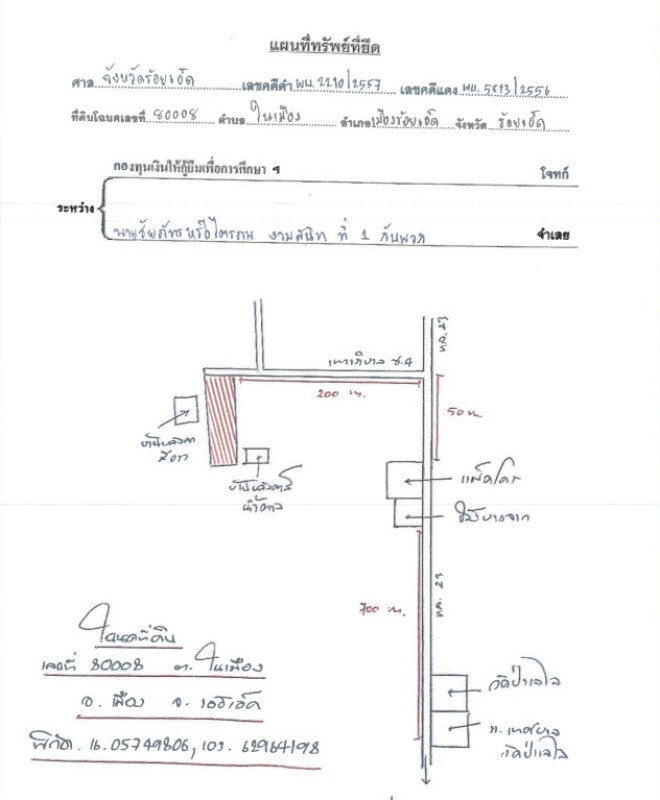 แผนที่ทรัพย์ที่ยึด
ศาล จังหวัดร้อยเอ็ด เลขคดีดำ ผบ. 2210/2557 เลขคดีแดง ผบ. 5813/2556
ที่ดินโฉนดเลขที่ 80008 ตำบล ในเมือง อำเภอ เมืองร้อยเอ็ด จังหวัด ร้อยเอ็ด
กองทุนเงินให้กู้ยืมเพื่อการศึกษา ฯ โจทก์
ระหว่าง
งามสนิท ที่ 1 กับพวก จำเลย
ทล. 23
เทวาภิบาล ซ.4
200 ม.
50 ม.
บ้านหลังคา
สีขาว
บ้านหลังคาสี
น้ำตาล
แม็คโคร
ปั๊มบางจาก
700 ม.
ทล. 23
โฉนดที่ดิน
เลขที่ 80008 ต. ในเมือง
อ. เมือง จ. ร้อยเอ็ด
พิกัด. 16.05749806, 103.62964198
วัดป่าเรไร
ร. เทศบาล
วัดป่าเรไร